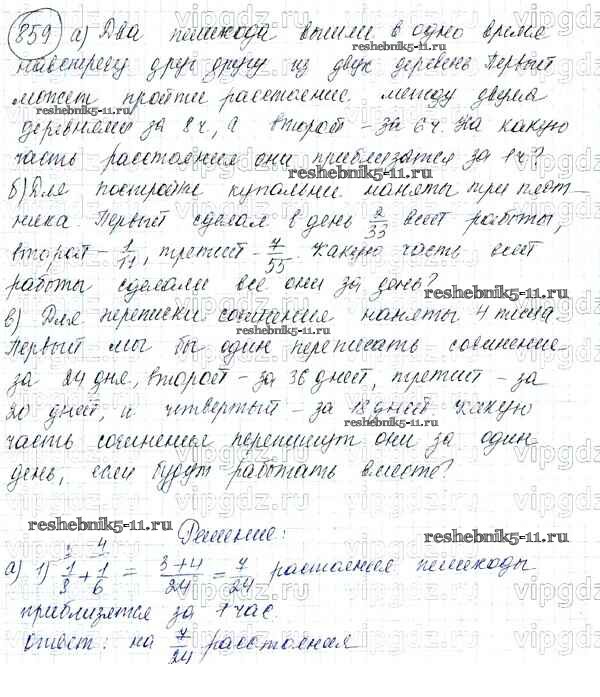 859 а) Два пешехода вышли в одно время
навстречу друг другу из двух деревень Первый
может пройти расстояние между двумя
деревнями за 8ч, а второй - за 6ч. На какую
часть расстояния они приблизятся за 1ч?
б) Для постройки купальни наняты три плот-
ника. Первый сделал в день 2/33 всей работы,
второй - 1/11, третий - 7/55. Какую часть всей
работы сделали все они за день?
в) Для переписки сочинения наняты 4 писца
Первый мог бы один переписать сочинение
за 24 дня, второй - за 36 дней, третий - за
20 дней, и четвертый - за 18 дней. Какую
часть сочинения перепишут они за один
день, если будут работать вместе?
reshebnik5-11.ru
Решение:
а) 1) 1/8 + 1/6 = (3+4)/24 = 7/24 расстояния пешеходы
приблизятся за 1 час.
Ответ: на 7/24 расстояния